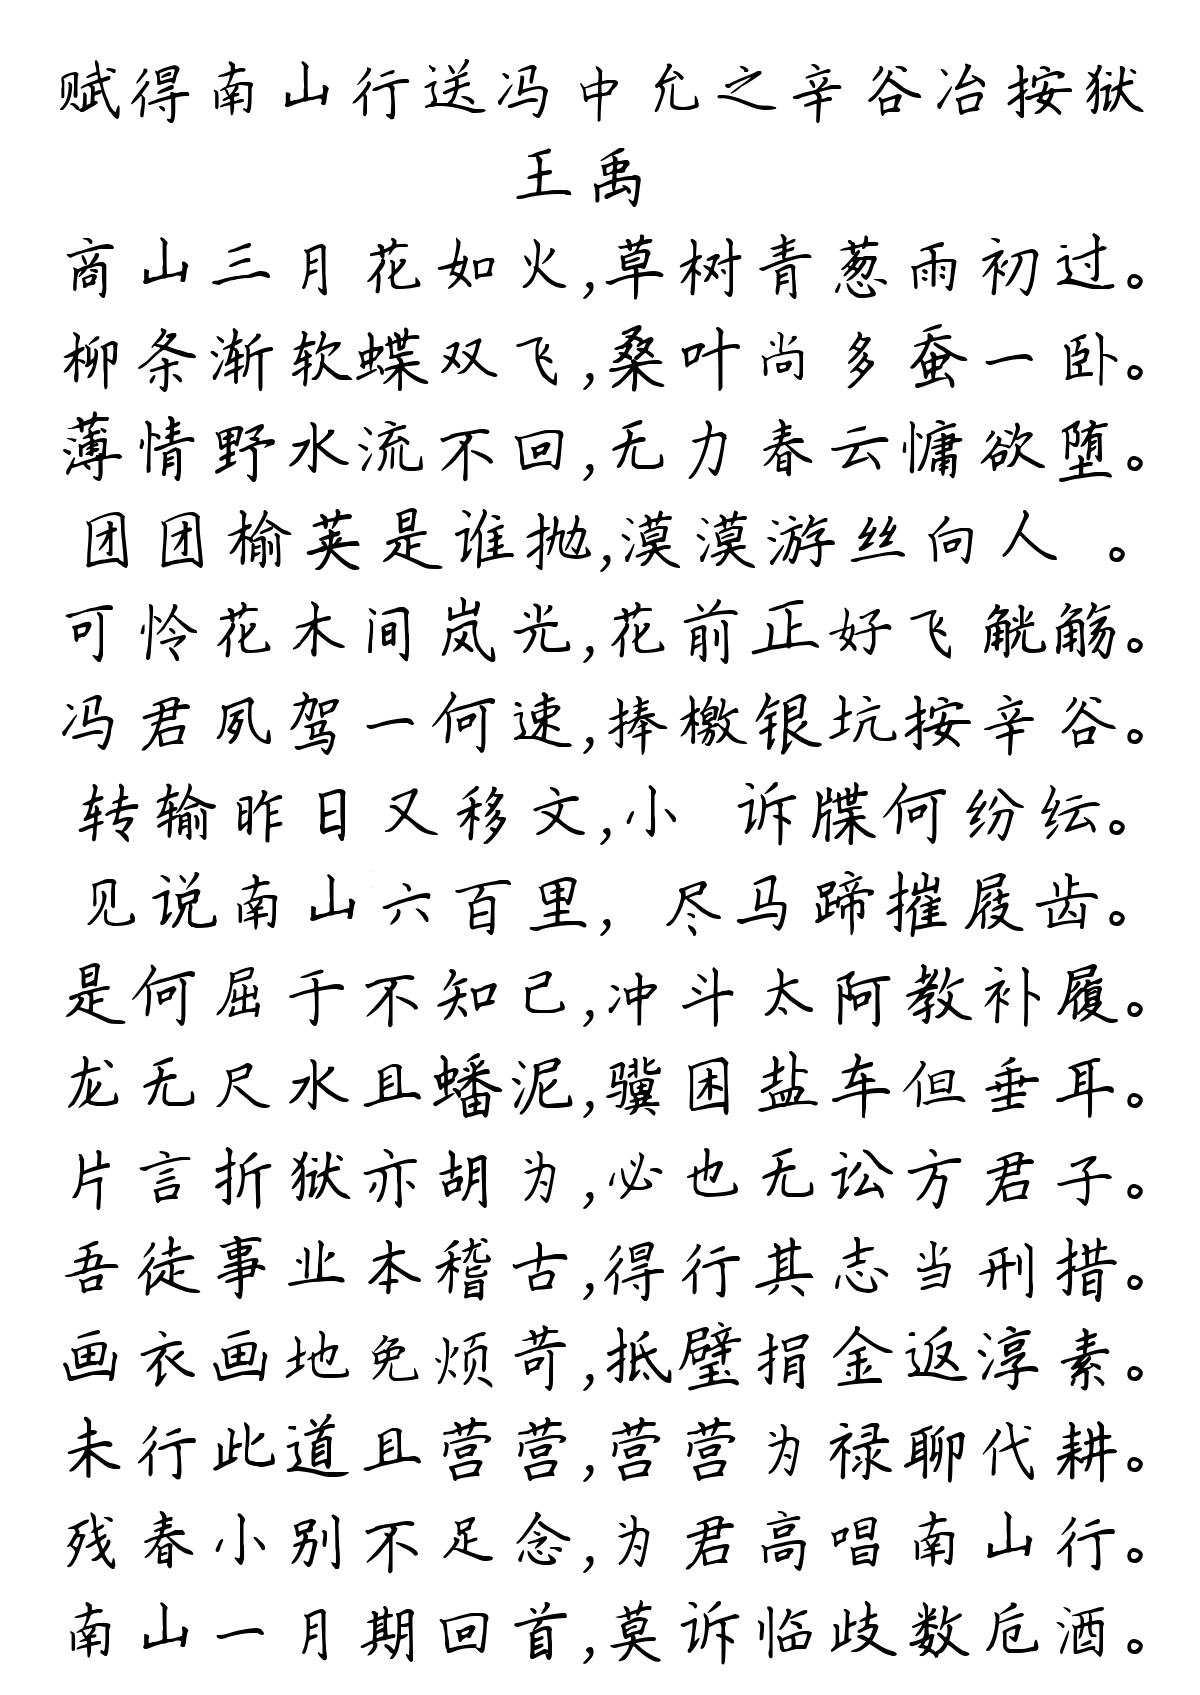 赋得南山行送冯中允之辛谷冶按狱
王禹
商山三月花如火,草树青葱雨初过。
柳条渐软蝶双飞,桑叶尚多蚕一卧。
薄情野水流不回,无力春云慵欲堕。
团团榆荚是谁抛,漠漠游丝向人 。
可怜花木间岚光,花前正好飞觥觞。
冯君夙驾一何速,捧檄银坑按辛谷。
转输昨日又移文,小 诉牒何纷纭。
见说南山六百里, 尽马蹄摧屐齿。
是何屈于不知己,冲斗太阿教补履。
龙无尺水且蟠泥,骥困盐车但垂耳。
片言折狱亦胡为,必也无讼方君子。
吾徒事业本稽古,得行其志当刑措。
画衣画地免烦苛,抵璧捐金返淳素。
未行此道且营营,营营为禄聊代耕。
残春小别不足念,为君高唱南山行。
南山一月期回首,莫诉临歧数卮酒。